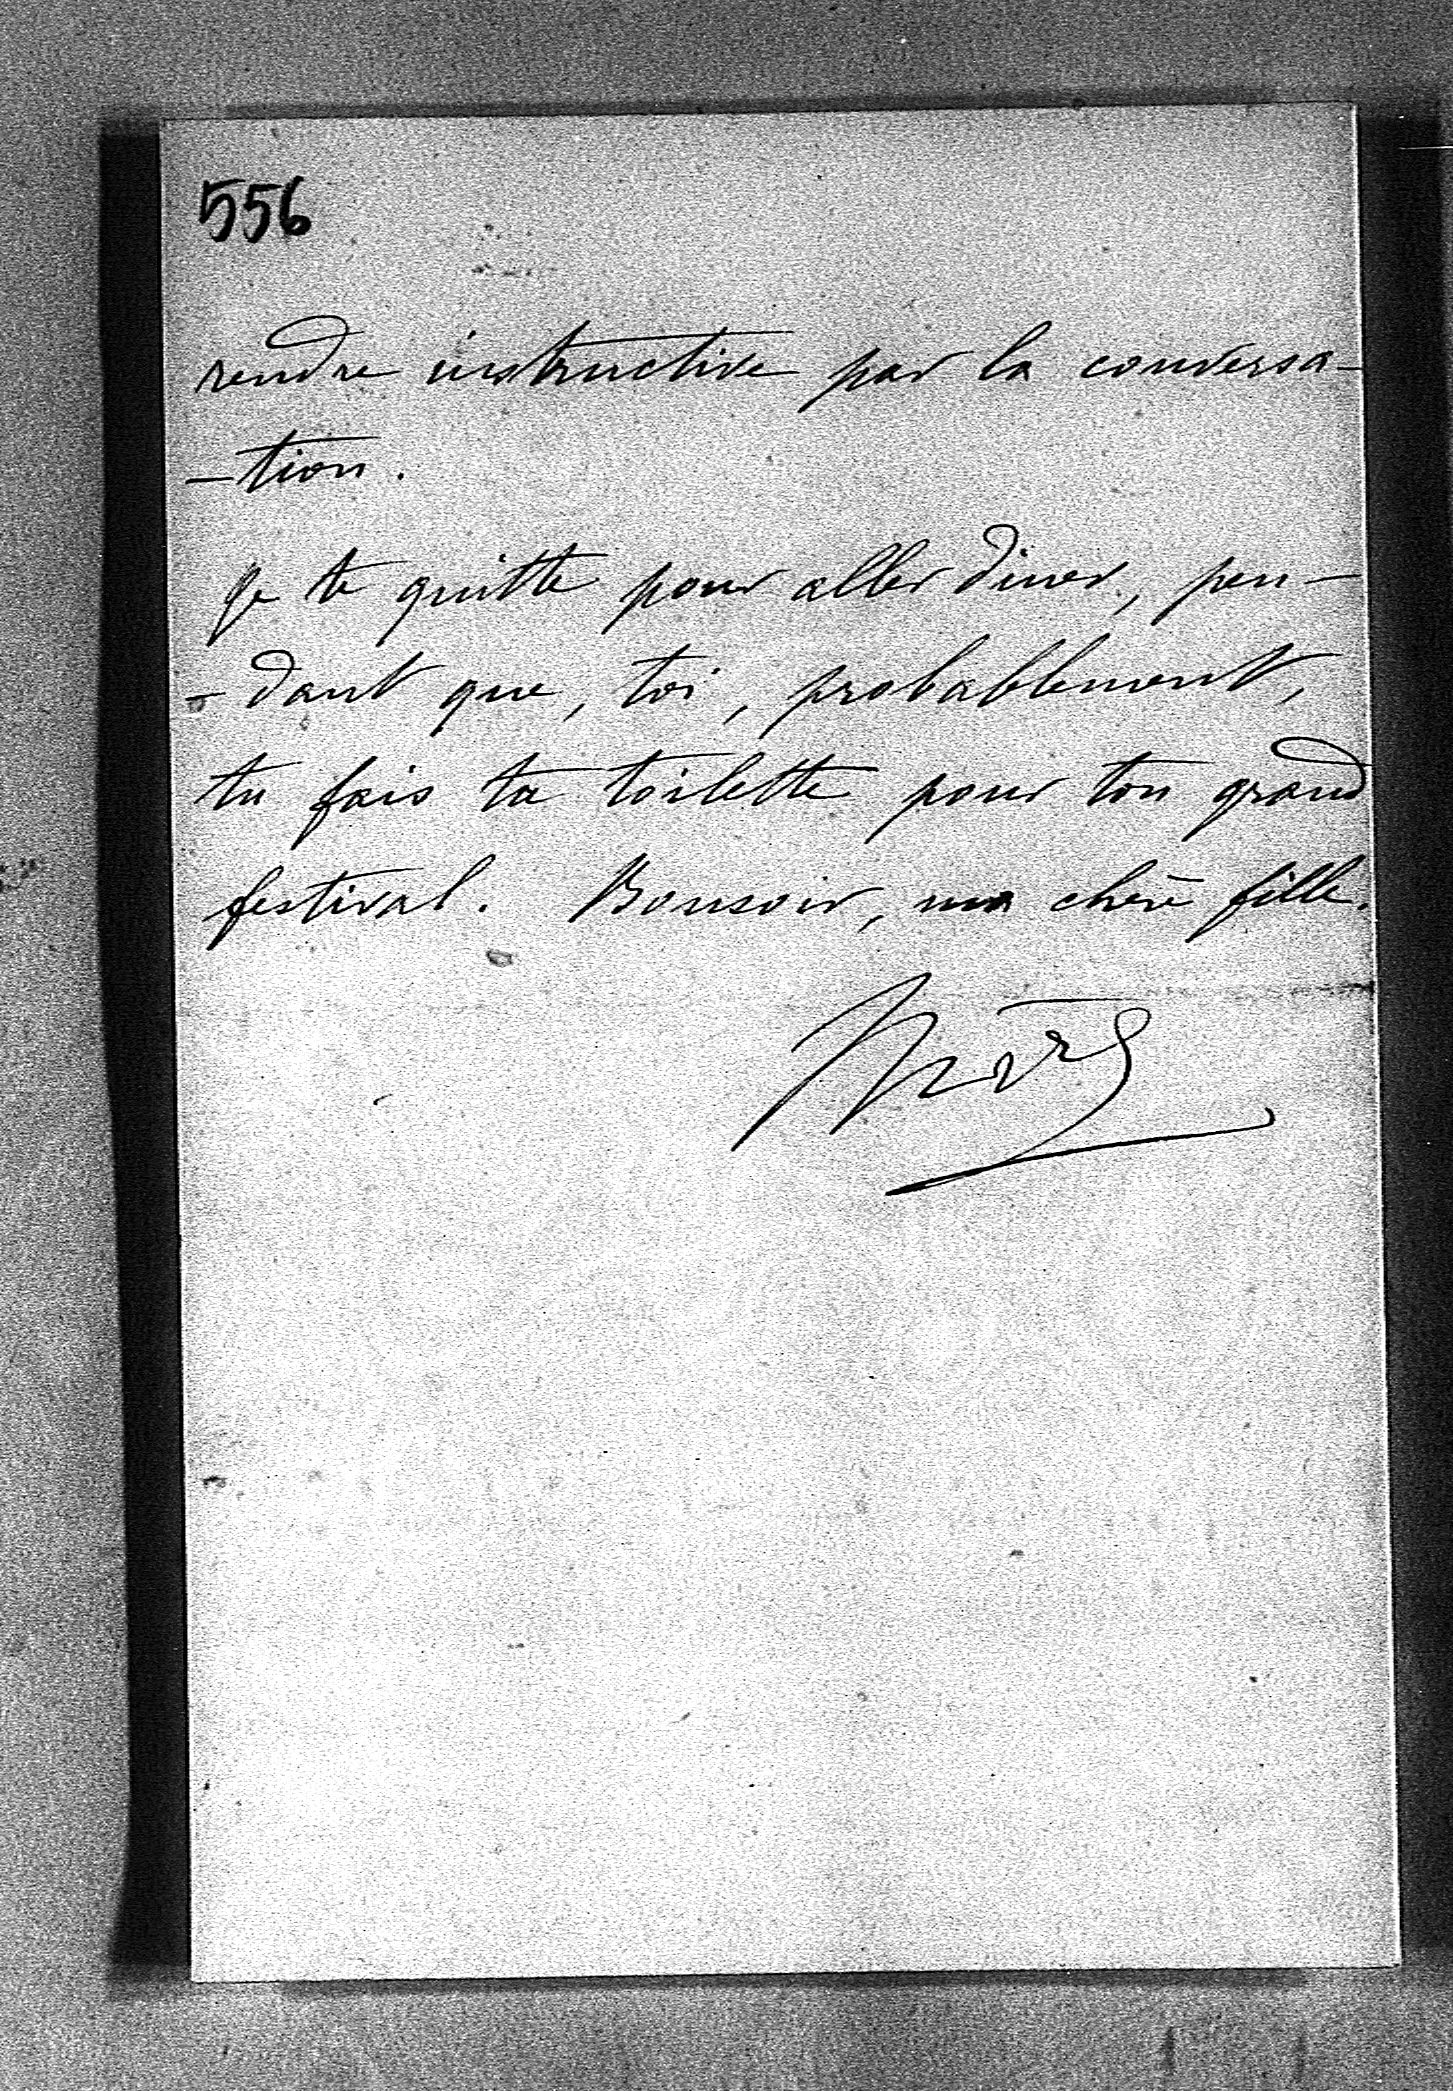 556
rendre instructive par la conversa-
-tion.
Je te quitte pour aller diner, pen-
-dant que, toi, probablement,
tu fais ta toilette pour ton grand
festival. Bonsoir, ma chère fille.